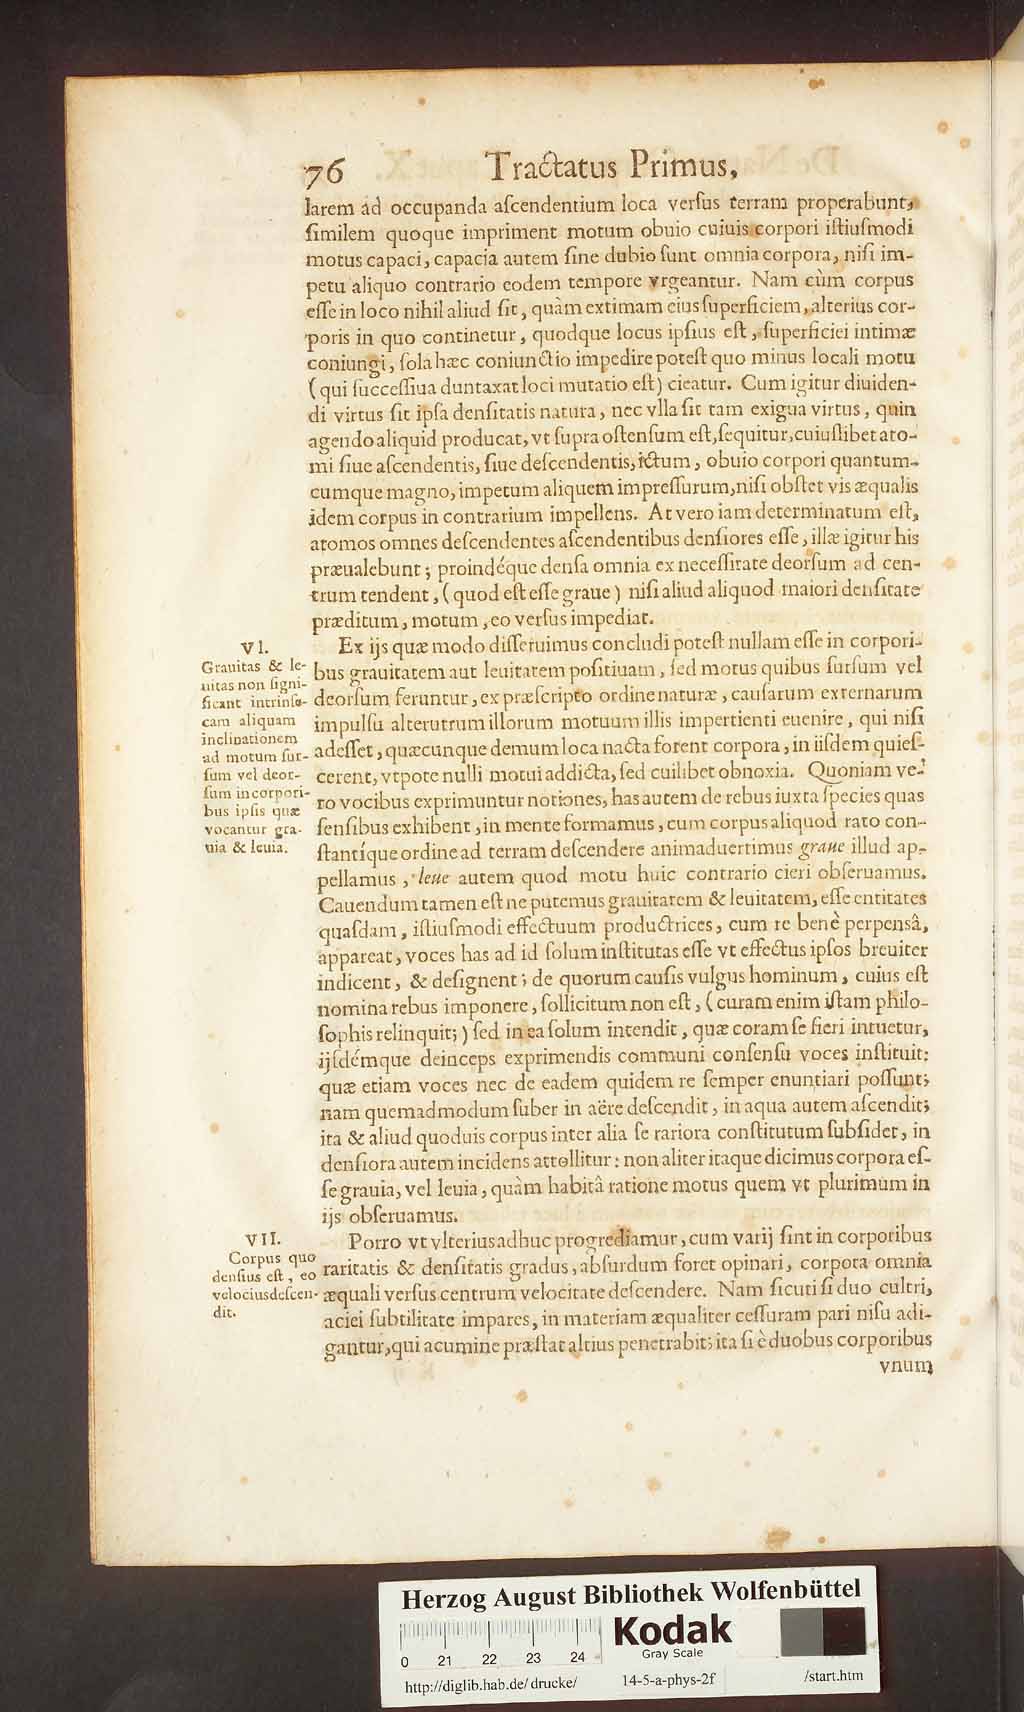 76 Tractatus Primus,
larem ad occupanda aſcendentium loca verſus terram properabunt,
ſimilem quoque impriment motum obuio cuiuis corpori iſtiuſmodi
motus capaci, capacia autem ſine dubio ſunt omnia corpora, niſi im-
petu aliquo contrario eodem tempore vrgeantur. Nam cùm corpus
eſſe in loco nihil aliud ſit, quàm extimam eius ſuperficiem, alterius cor-
poris in quo continetur, quodque locus ipſius eſt, ſuperficiei intimæ
coniungi, ſola hæc coniunctio impedire poteſt quo minus locali motu
(qui ſucceſſiua duntaxat loci mutatio eſt) cieatur. Cum igitur diuiden-
di virtus ſit ipſa denſitatis natura, nec vlla ſit tam exigua virtus, quin
agendo aliquid producat, vt ſupra oſtenſum eſt, ſequitur, cuiuſlibet ato-
mi ſiue aſcendentis, ſiue deſcendentis, ictum, obuio corpori quantum-
cumque magno, impetum aliquem impreſſurum, niſi obſtet vis æqualis
idem corpus in contrarium impellens. At vero iam determinatum eſt,
atomos omnes deſcendentes aſcendentibus denſiores eſſe, illæ igitur his
præualebunt; proindéque denſa omnia ex neceſſitate deorſum ad cen-
trum tendent, (quod eſt eſſe graue) niſi aliud aliquod maiori denſitate
præditum, motum, eo verſus impediat.
VI.
Grauitas & le-
uitas non ſigni-
ficant intrinſe-
cam aliquam
inclinationem
ad motum ſur-
ſum vel deor-
ſum in corpori-
bus ipſis quæ
vocantur gra-
uia & leuia.
Ex ijs quæ modo diſſeruimus concludi poteſt nullam eſſe in corpori-
bus grauitatem aut leuitatem poſitiuam, ſed motus quibus ſurſum vel
deorſum feruntur, ex præſcripto ordine naturæ, cauſarum externarum
impulſu alterutrum illorum motuum illis impertienti euenire, qui niſi
adeſſet, quæcunque demum loca nacta forent corpora, in iiſdem quieſ-
cerent, vtpote nulli motui addicta, ſed cuilibet obnoxia. Quoniam ve-
ro vocibus exprimuntur notiones, has autem de rebus iuxta ſpecies quas
ſenſibus exhibent, in mente formamus, cum corpus aliquod rato con-
ſtantíque ordine ad terram deſcendere animaduertimus graue illud ap-
pellamus, leue autem quod motu huic contrario cieri obſeruamus.
Cauendum tamen eſt ne putemus grauitatem & leuitatem, eſſe entitates
quaſdam, iſtiuſmodi effectuum productrices, cum re benè perpensâ,
appareat, voces has ad id ſolum inſtitutas eſſe vt effectus ipſos breuiter
indicent, & deſignent; de quorum cauſis vulgus hominum, cuius eſt
nomina rebus imponere, ſollicitum non eſt, (curam enim iſtam philo-
ſophis relinquit;) ſed in ea ſolum intendit, quæ coram ſe fieri intuetur,
ijſdémque deinceps exprimendis communi conſenſu voces inſtituit:
quæ etiam voces nec de eadem quidem re ſemper enuntiari poſſunt;
nam quemadmodum ſuber in aëre deſcendit, in aqua autem aſcendit;
ita & aliud quoduis corpus inter alia ſe rariora conſtitutum ſubſidet, in
denſiora autem incidens attollitur: non aliter itaque dicimus corpora eſ-
ſe grauia, vel leuia, quàm habitâ ratione motus quem vt plurimum in
ijs obſeruamus.
VII.
Corpus quo
denſius eſt, eo
velocius deſcen-
dit.
Porro vt vlterius adhuc progrediamur, cum varij ſint in corporibus
raritatis & denſitatis gradus, abſurdum foret opinari, corpora omnia
æquali verſus centrum velocitate deſcendere. Nam ſicuti ſi duo cultri,
aciei ſubtilitate impares, in materiam æqualiter ceſſuram pari niſu adi-
gantur, qui acumine præſtat altius penetrabit; ita ſi è duobus corporibus
vnum
Herzog August Bibliothek Wolfenbüttel
Kodak
Gray Scale
0 21 22 23 24
http://diglib.hab.de/drucke/ 14-5-a-phys-2f /start.htm